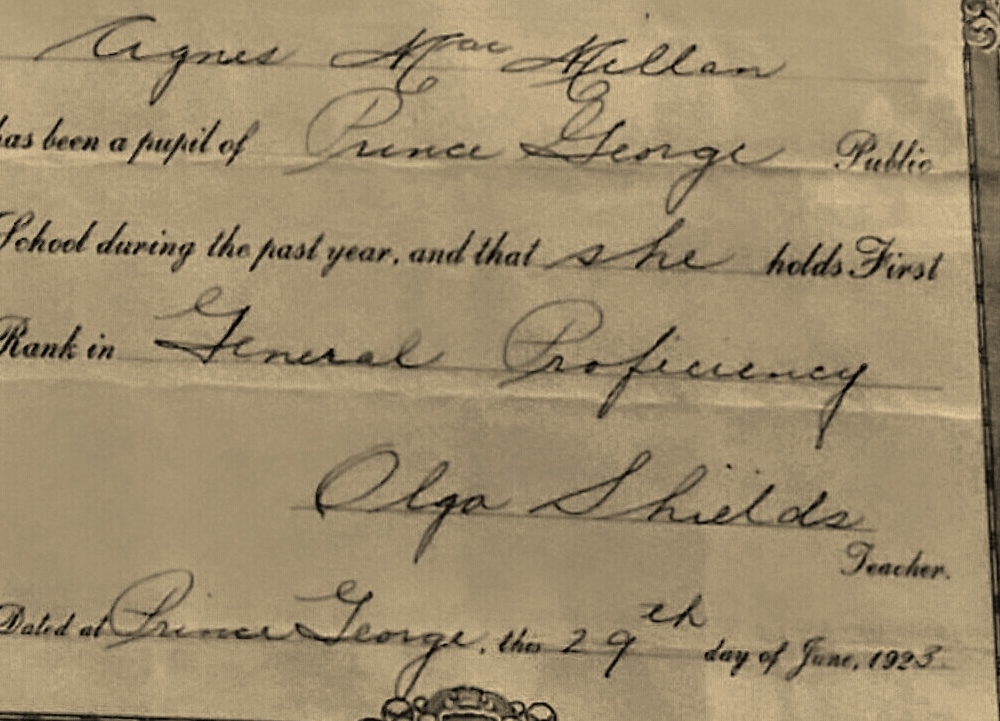 Agnes MacMillan
has been a pupil of Prince George Public
School during the past year, and that she holds First
Rank in General Proficiency
Olga Shields
Teacher.
Dated at Prince George, this 29th day of June, 1923.